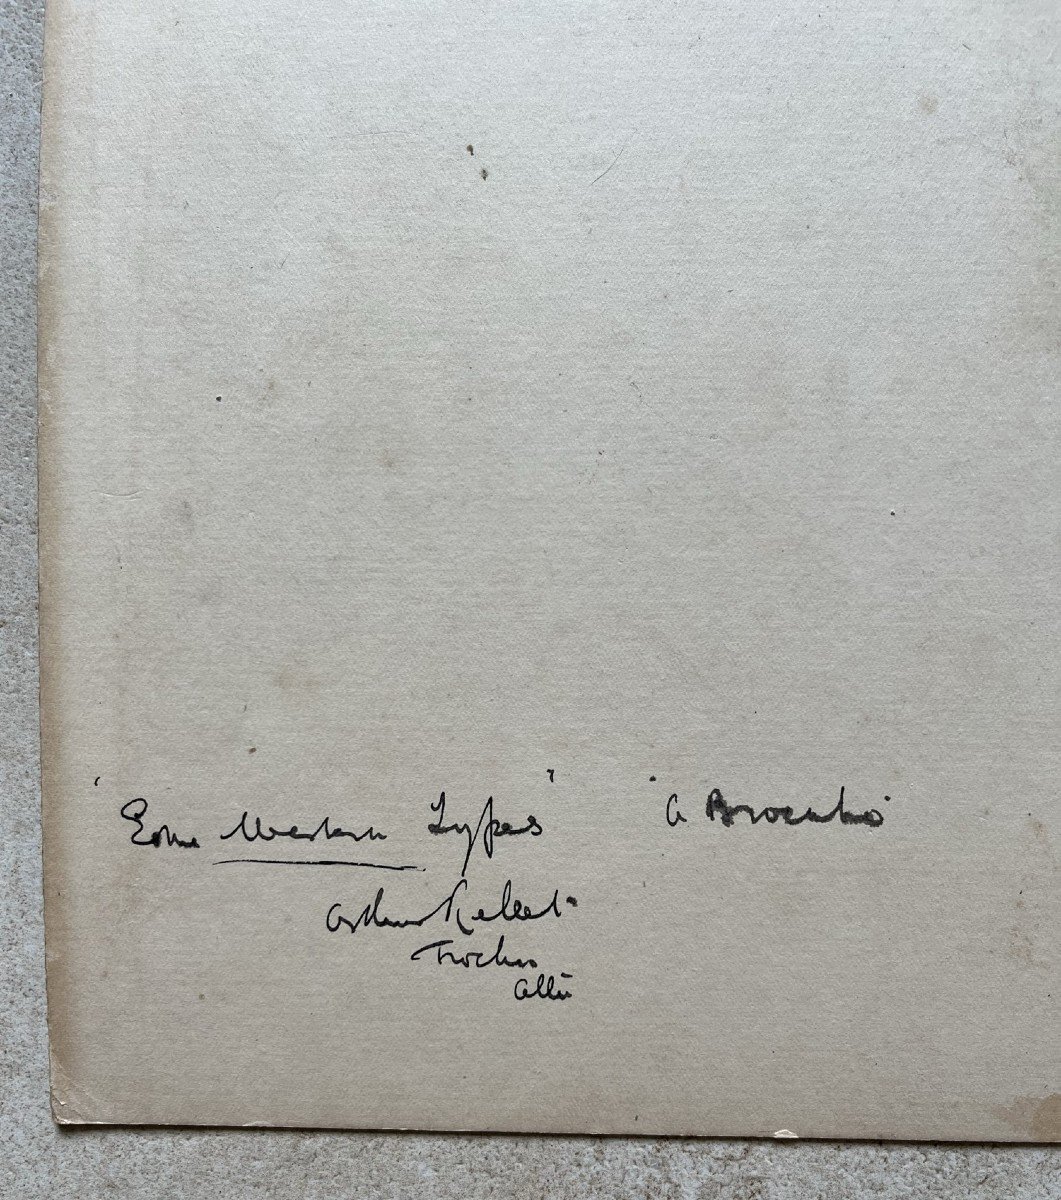 'Some Western Types" "A Broncho"
Arthur
Trochu
Alta